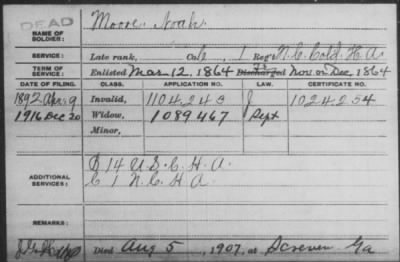 DEAD
NAME OF SOLDIER: Moore, Noah
SERVICE: Late rank, Co. G, 1 Reg't N.C. Cold. H.A.
TERM OF SERVICE: Enlisted Mar. 12, 1864 Discharged Nov or Dec, 1864
DATE OF FILING. CLASS. APPLICATION NO. LAW. CERTIFICATE NO.
1892 Apr. 9 Invalid, 1104243 J 1024254
1916 Dec 20 Widow, 1089467 Sept
Minor,
ADDITIONAL SERVICES: B 14 U.S.C.H.A.
C 1 N.C.H.A.
REMARKS:
Died Aug 5, 1907, at Screven Ga